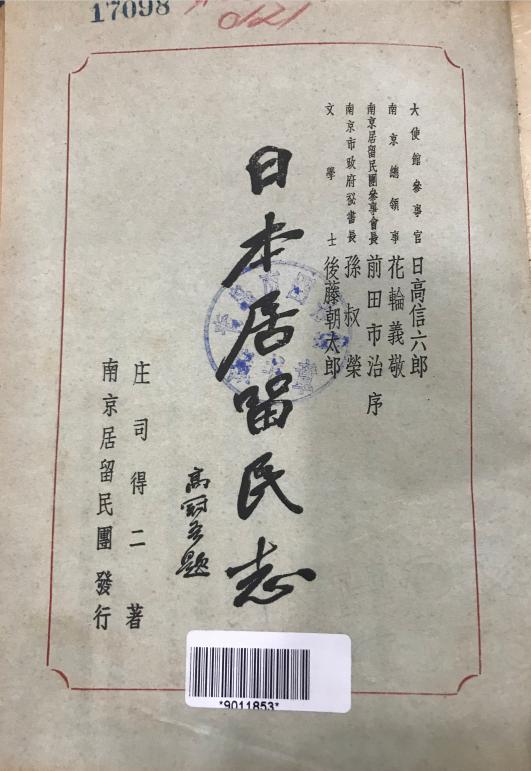 17098
0121
大使館參事官 日高信六郎
南京總領事 花輪義敬
南京居留民團參事會長 前田市治 序
南京市政府秘書長 孫叔榮
文學士 後藤朝太郎
日本居留民志
高冠吾題
庄司得二 著
南京居留民團 發行
*9011853*